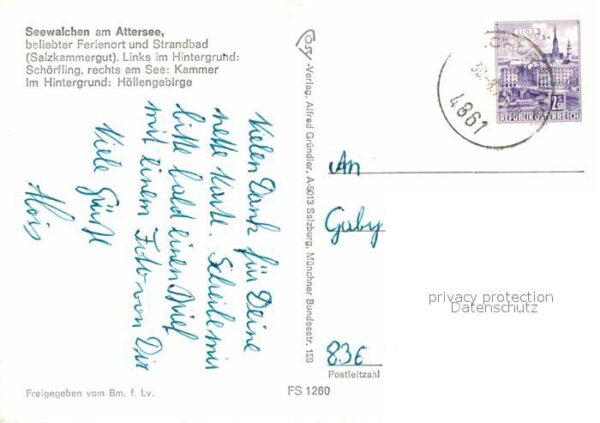 Seewalchen am Attersee,
beliebter Ferienort und Strandbad
(Salzkammergut). Links im Hintergrund:
Schörfling, rechts am See: Kammer
Im Hintergrund: Höllengebirge
Vielen Dank für Deine
nette Karte. Schreibe mir
bitte bald einen Brief
mit einem Foto von Dir
Viele Grüße
Alois
Freigegeben vom Bm. f. Lv.
-Verlag, Alfred Gründler, A-5013 Salzburg, Münchner Bundesstr. 159
FS 1260
LINZ
REPUBLIK ÖSTERREICH
4861
An
Gaby
privacy protection
Datenschutz
836
Postleitzahl